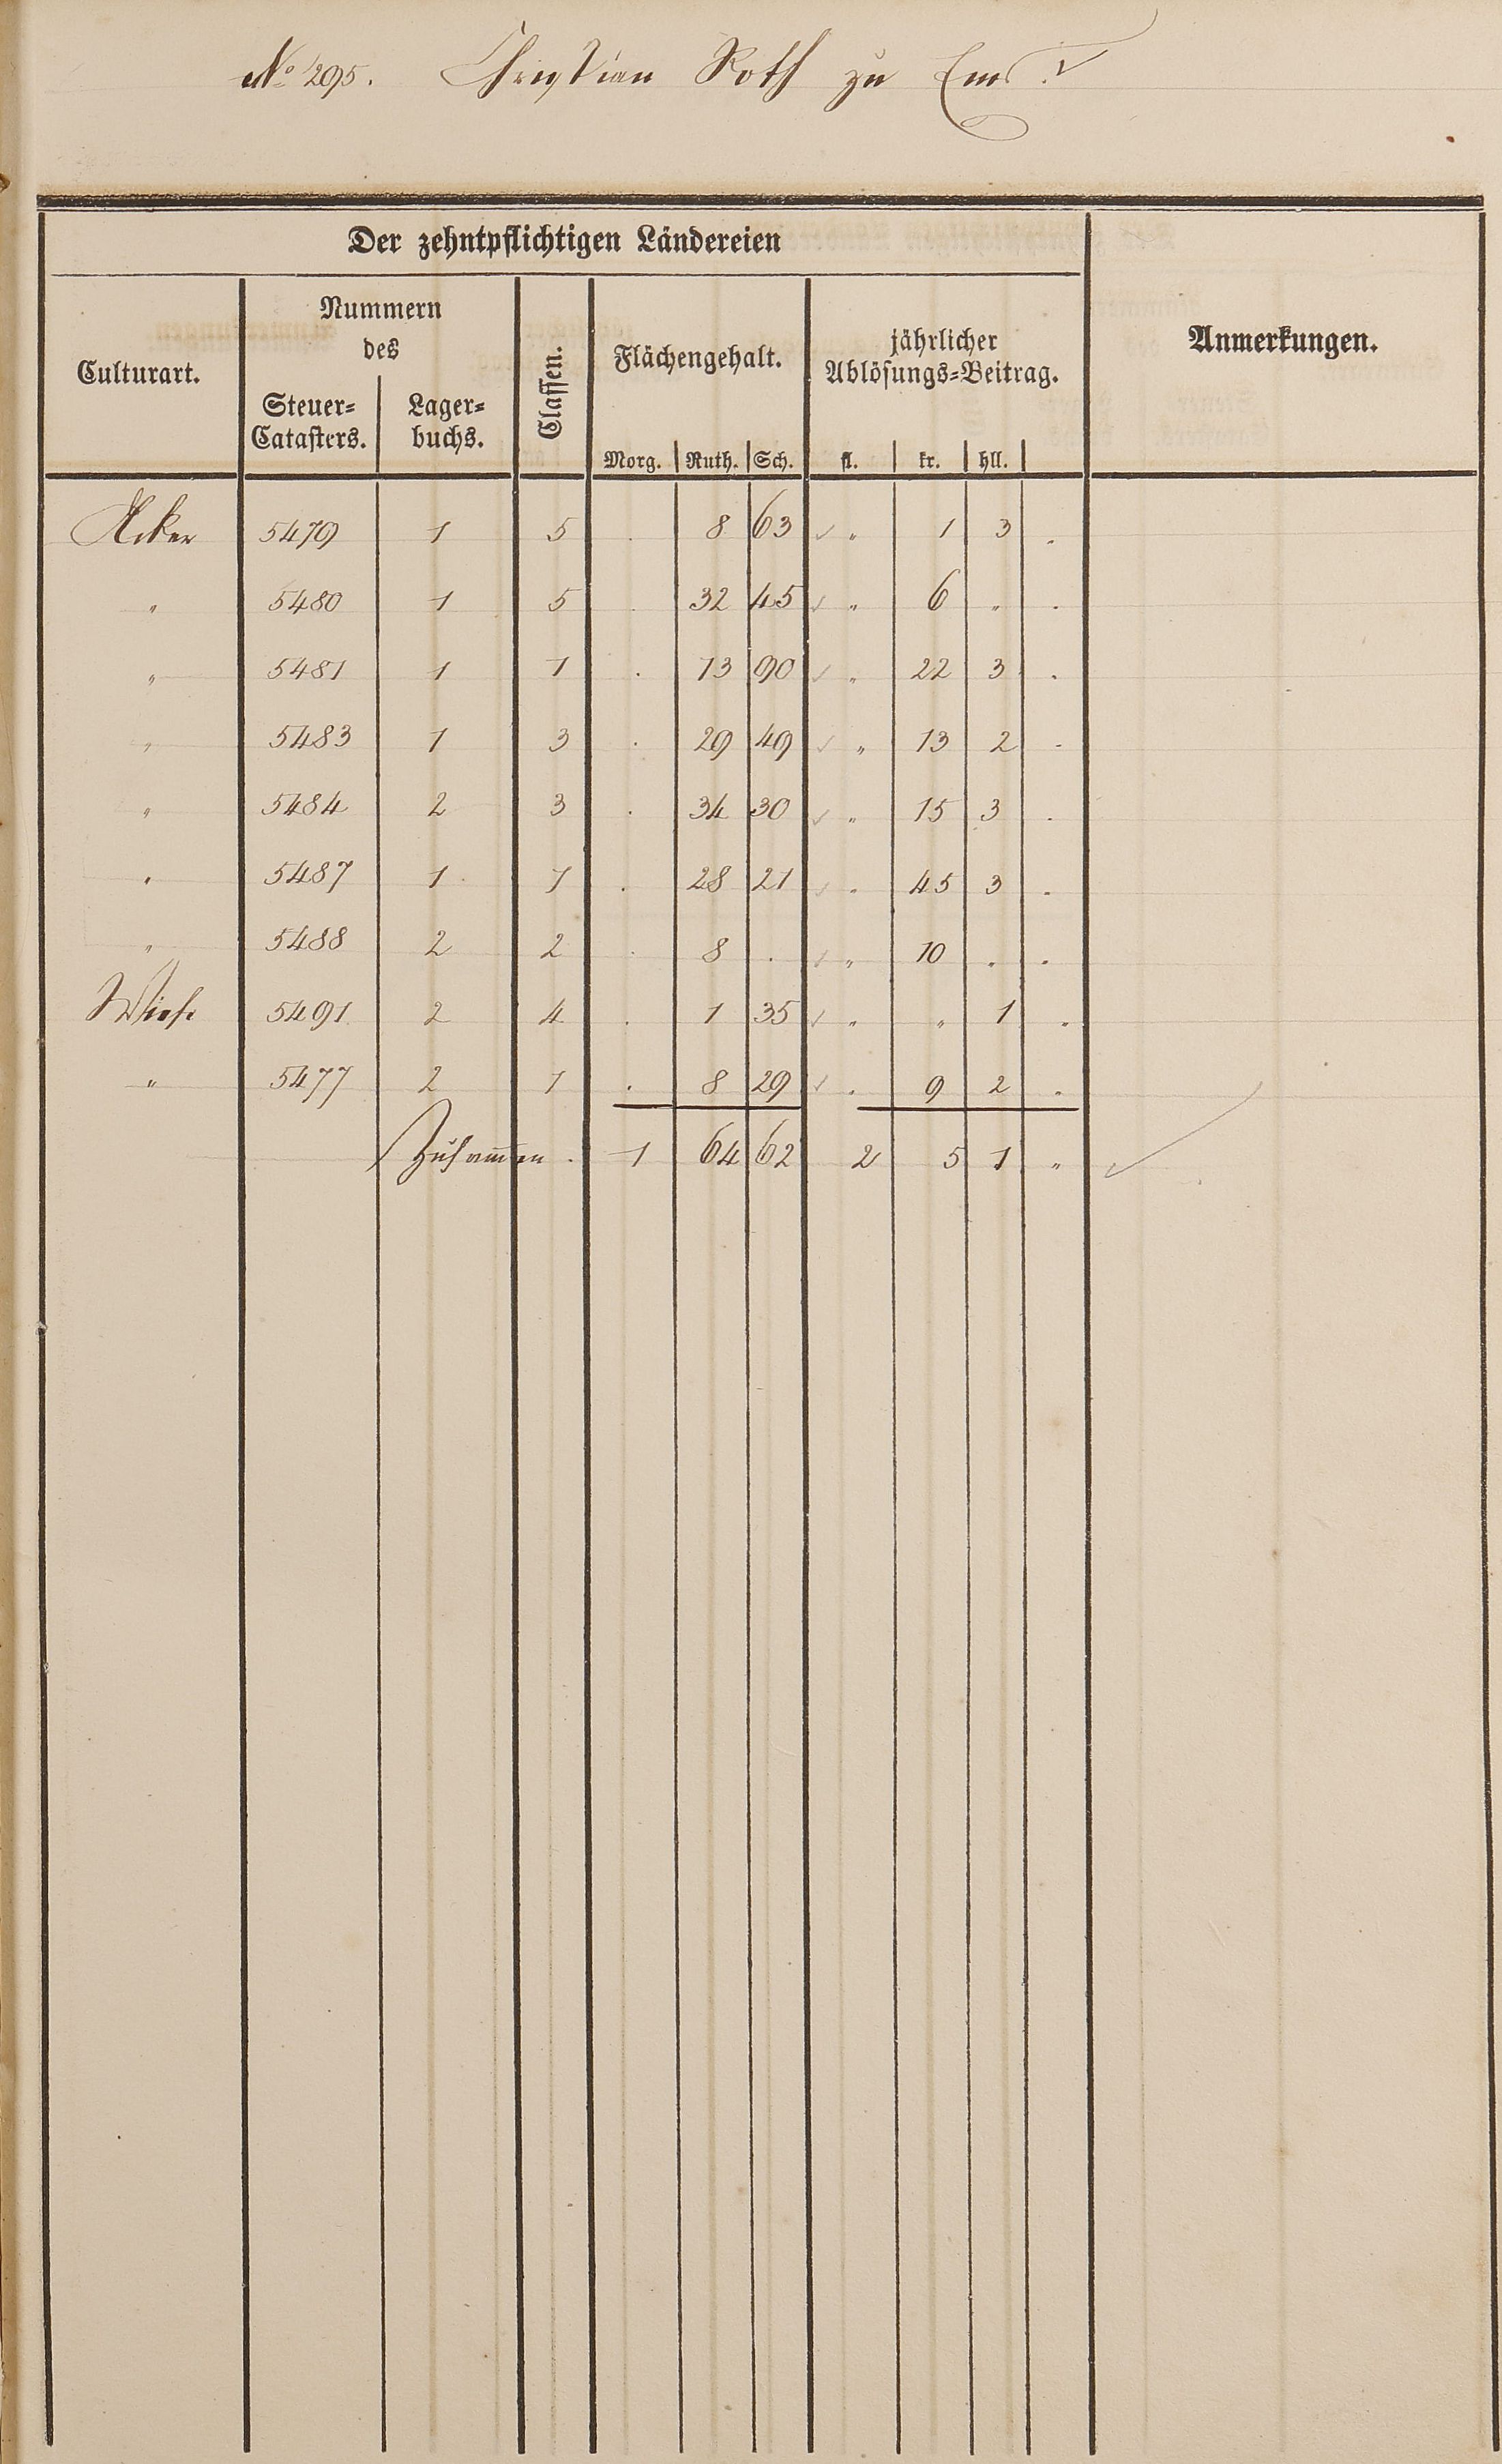 No 295. Christian Roth zu Ems.
Der zehntpflichtigen Ländereien
Culturart.
Nummern
des
Steuer-
Catasters.
Lager-
buchs.
Classen.
Flächengehalt.
Morg. Ruth. Sch.
jährlicher
Ablösungs-Beitrag.
fl. kr. hll.
Anmerkungen.
Acker 5479 1 5 . 8 63 " 1 3 .
" 5480 1 5 . 32 45 " 6 " .
" 5481 1 1 . 13 90 " 22 3 .
" 5483 1 3 . 29 49 " 13 2 .
" 5484 2 3 . 34 30 " 15 3 .
" 5487 1 1 . 28 21 " 45 3 .
" 5488 2 2 . 8 . " 10 . .
Wiese 5491 2 4 . 1 35 " " 1 .
" 5477 2 1 . 8 29 . 9 2 .
Zusammen . 1 64 62 2 5 1 "